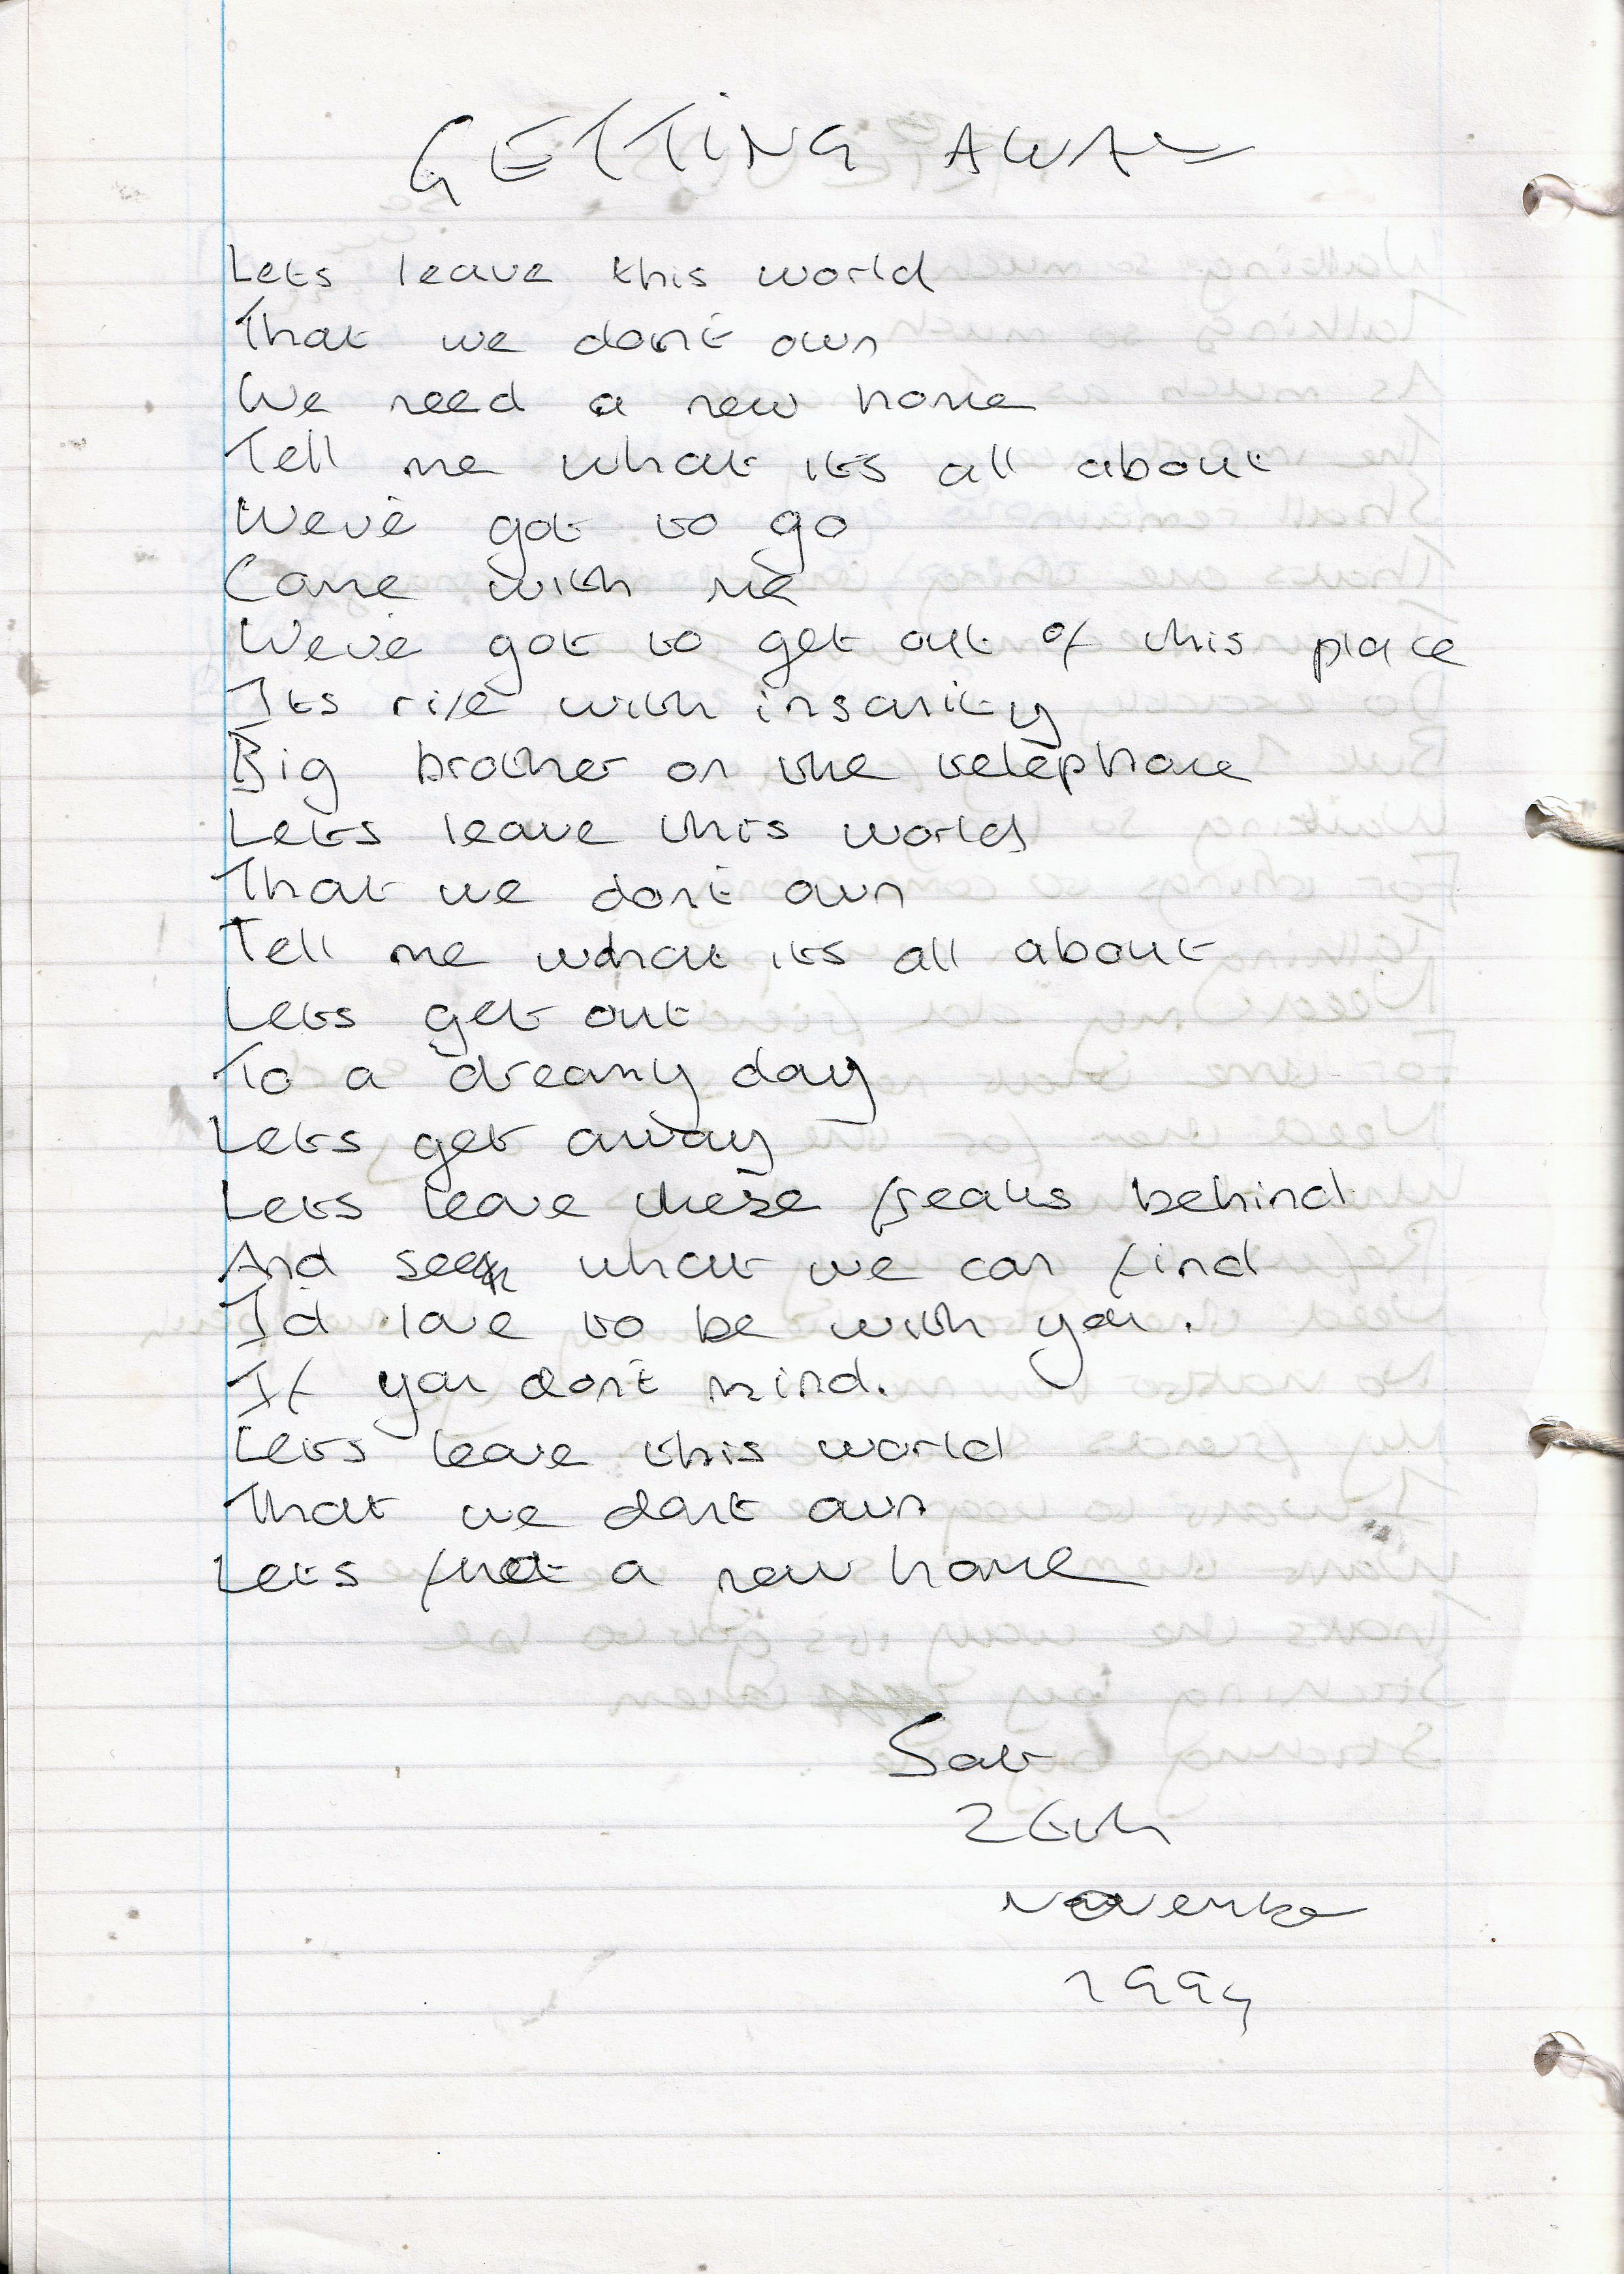 GETTING AWAY
Lets leave this world
That we don't own
We need a new home
Tell me what its all about
We've got to go
Come with me
We've got to get out of this place
Its rife with insanity
Big brother on the telephone
Lets leave this world
That we don't own
Tell me what its all about
Lets get out
To a dreamy day
Lets get away
Lets leave these freaks behind
And seek what we can find
I'd love to be with you.
If you don't mind.
Lets leave this world
That we dont own
Lets find a new home
Sat
26th
November
1994